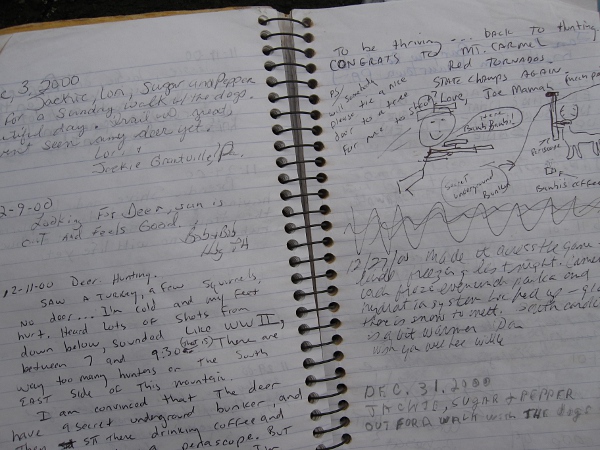 3, 2000
Jackie, Lori, Sugar and Pepper
for a Sunday walk of the dogs.
day. Trail is good,
seen any deer yet.
Lori &
Jackie Grantville, Pa.
2-9-00
Looking For Deer, sun is
out and Feels Good!
12-11-00 Deer Hunting.
SAW A Turkey, A few Squirrels,
No deer... I'm Cold and my feet
hurt. Heard Lots of Shots from
down below, sounded Like WW II,
between 7 and 9:30 There are
way too many hunters on the South
EAST Side of This mountain.
I am convinced that The deer
have a secret underground bunker, and
There drinking coffee and
a periscope. But
I'm
To be thriving... back to hunting
CONGRATS TO MT. CARMEL
Red TORNADOS
STATE CHAMPS AGAIN
Joe Mama
PS/
will somebody
please tie a nice
deer to a tree
For me to shoot. Love,
Here
Bambi Bambi!
secret
underground
Bunker
Bambi's coffee
12/27/00 Made it across the game
lands
freezing last night. Camel
back froze
parka and
there is snow to melt.
is a bit warmer Dan
DEC. 31, 2000
JACKIE, SUGAR & PEPPER
OUT FOR A WALK with THE dogs